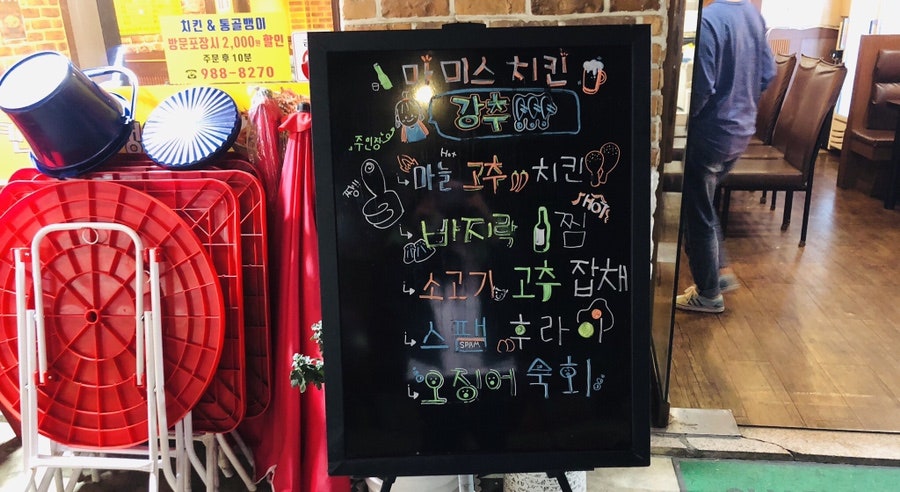 치킨 & 통골뱅이
방문포장시 2,000원 할인
주문 후 10분
☎ 988-8270
맘 미스 치킨
강추
주인장
짱!
Hot
마늘 고추 치킨
HOT
바지락 찜
소고기 고추 잡채
스팸 후라이
SPAM
오징어 숙회